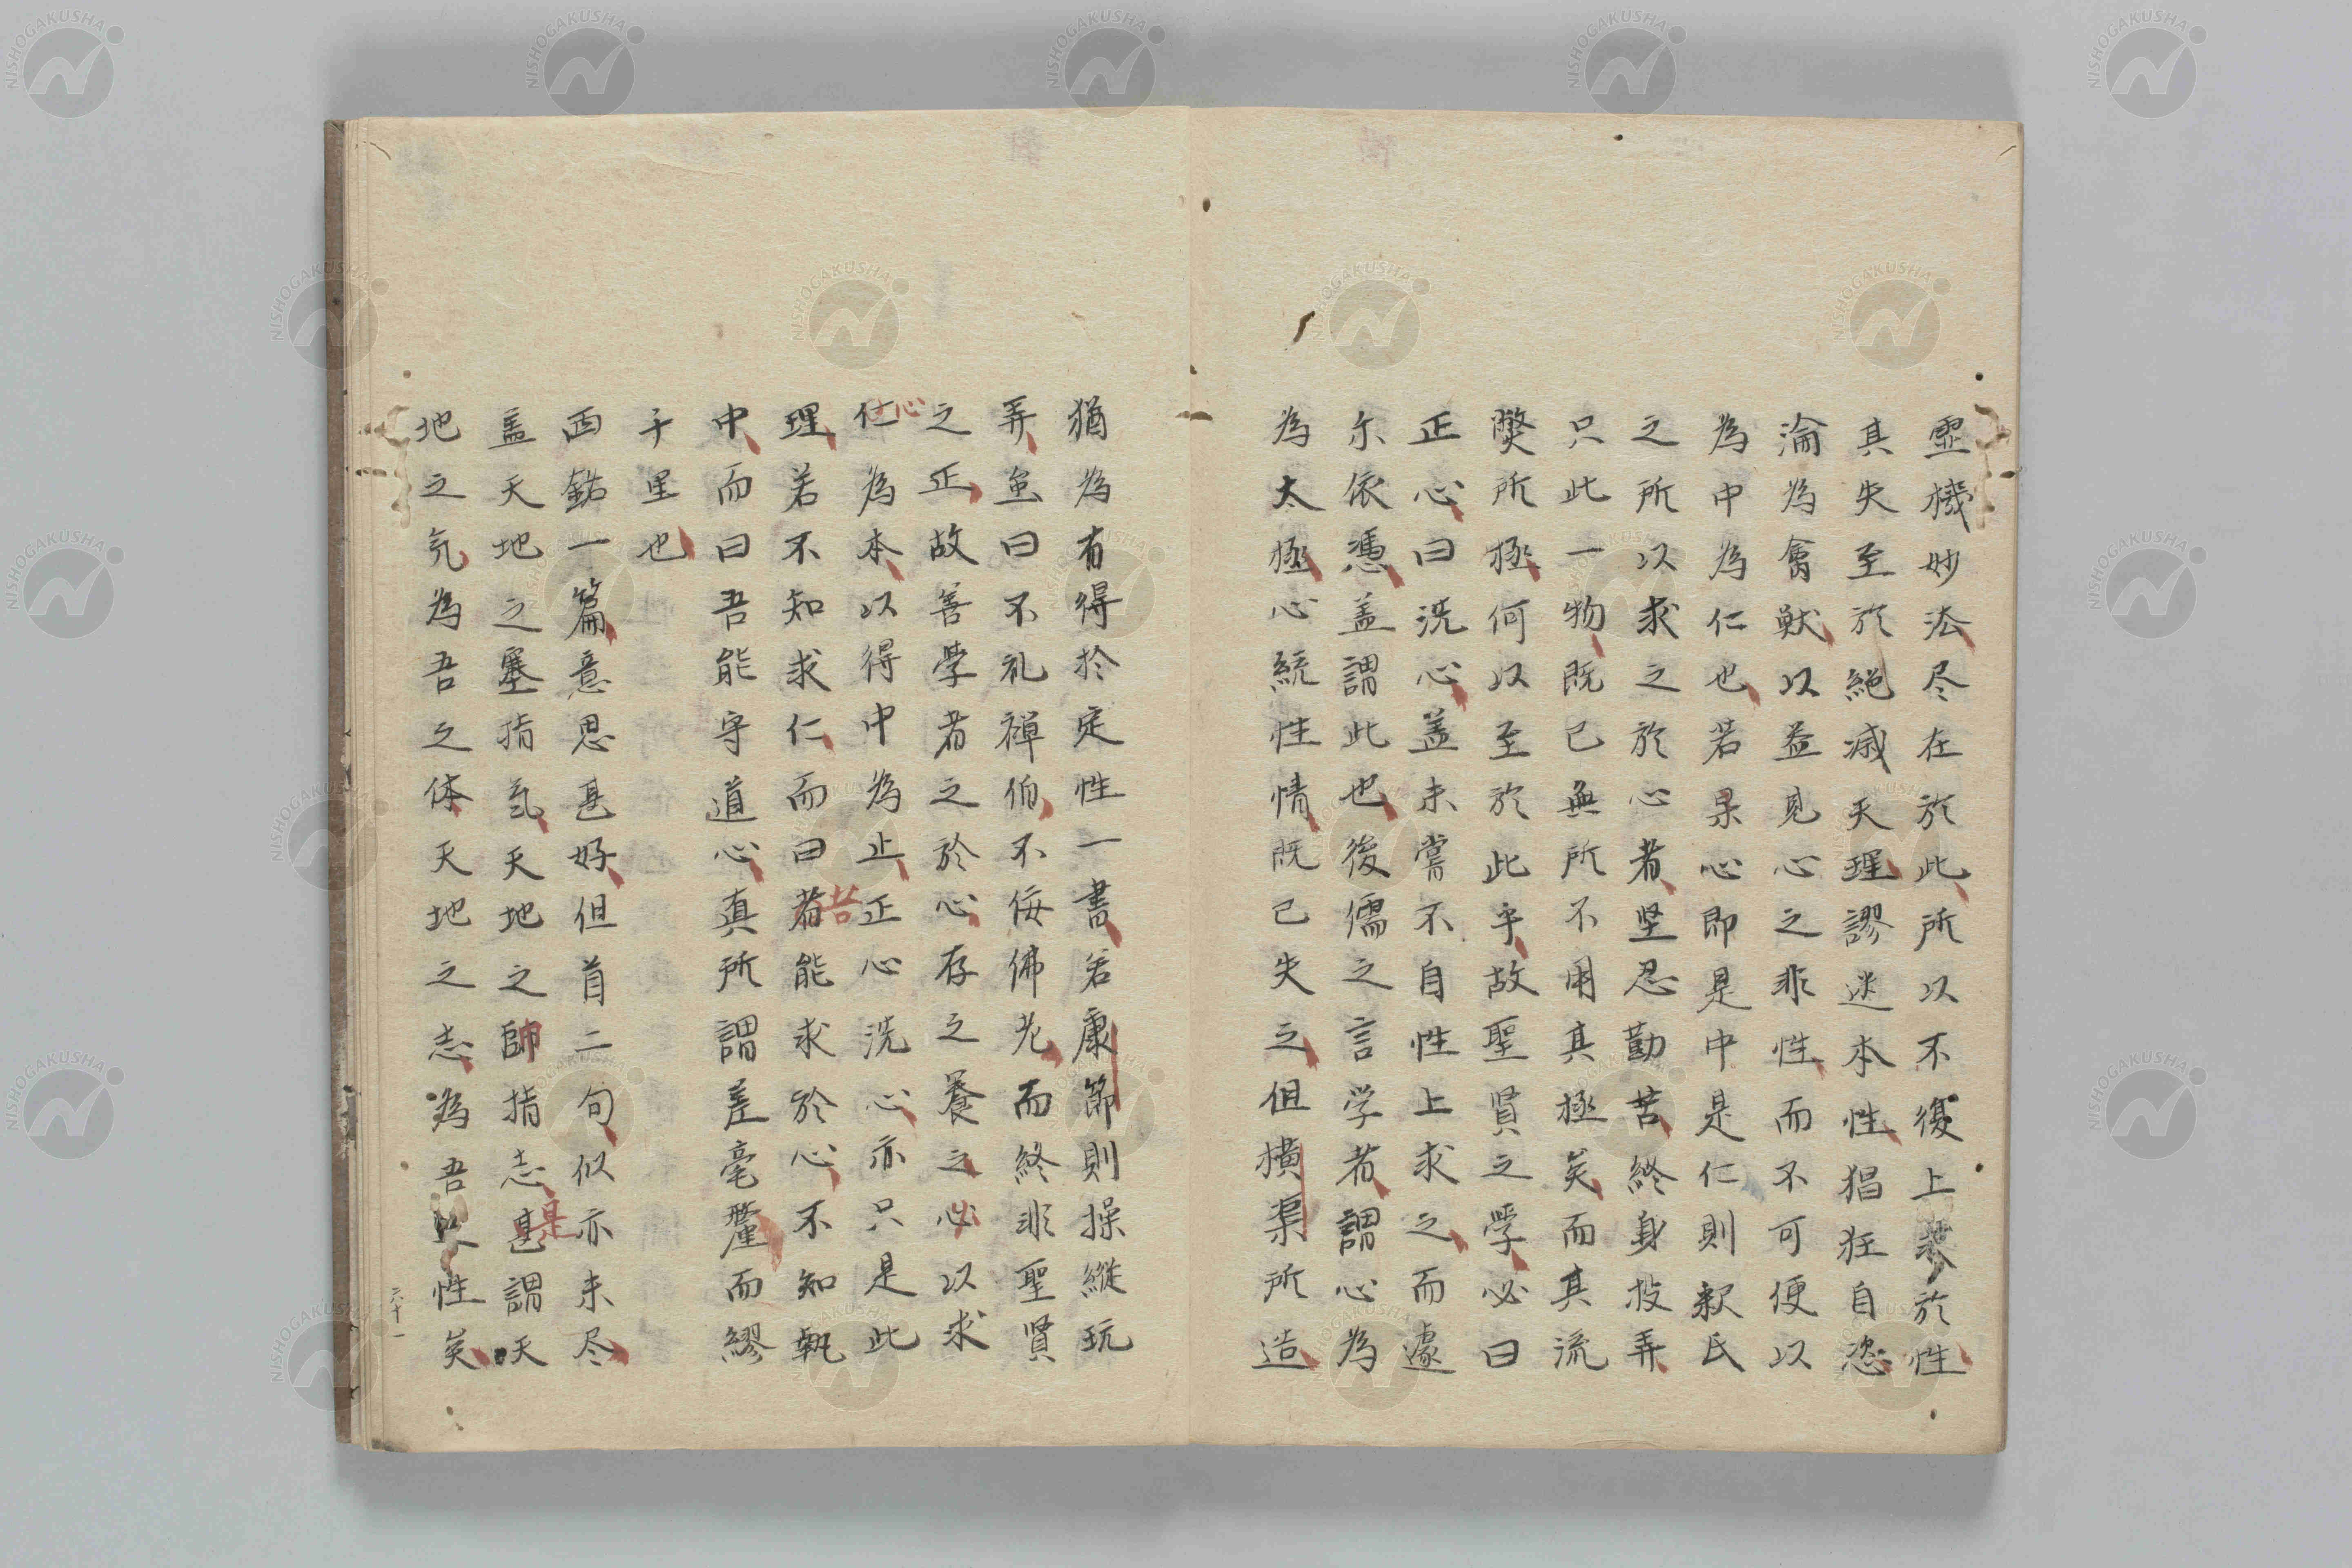 霊機妙法尽在於此所以不復上求於性
其失至於絶滅天理謬迷本性猖狂自恣
淪為禽獣以益見心之非性而不可便以
為中為仁也若果心即是中是仁則釈氏
之所以求之於心者坚忍勤苦終身投弄
只此一物既已無所不用其極矣而其流
獘所極何以至於此乎故聖賢之學必曰
正心曰洗心盖未嘗不自性上求之而遽
尓依憑盖謂此也後儒之言学者謂心為
為太極心統性情既已失之但横渠所造
猶為有得於定性一書若康節則操縦玩
弄魚曰不礼禅伯不侫佛老而終非聖賢
之正故善學者之於心存之養之必以求
仁心為本以得中為止正心洗心亦只是此
理若不知求仁而曰若苦能求於心不知執
中而曰吾能守道心真所謂差毫釐而繆
千里也
西銘一篇意思甚好但首二句似亦未尽
盖天地之塞指氣天地之帥指志甚是謂天
地之気為吾之体天地之志為吾之性矣
六十一
NISHOGAKUSHA